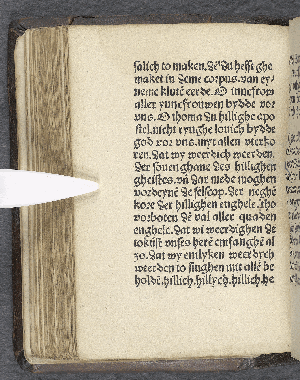 salich to maken. dē du hefst ghe
maket in deme corpus. van ey-
neme klutē eerde. O iuncfrow
aller yuncfrouwen bydde vor
vns. O thoma du hillighe apo
stel. nicht tzughe louich bydde
god vor vns. myt allen vterko
ren. dat wy weerdich weerden.
der souen ghaue des hillighen
gheistes. vñ dar mede moghen
vordeynē de selscop. der neghē
kore der hillighen enghele. tho
vorboten dē val aller quaden
enghele. dat wi weerdighen de
tokūst vnses herē emfanghē al
zo. dat wy emlyken weerdych
weerden to singhen mit allē be
holdē. hillich. hillych. hillich. he